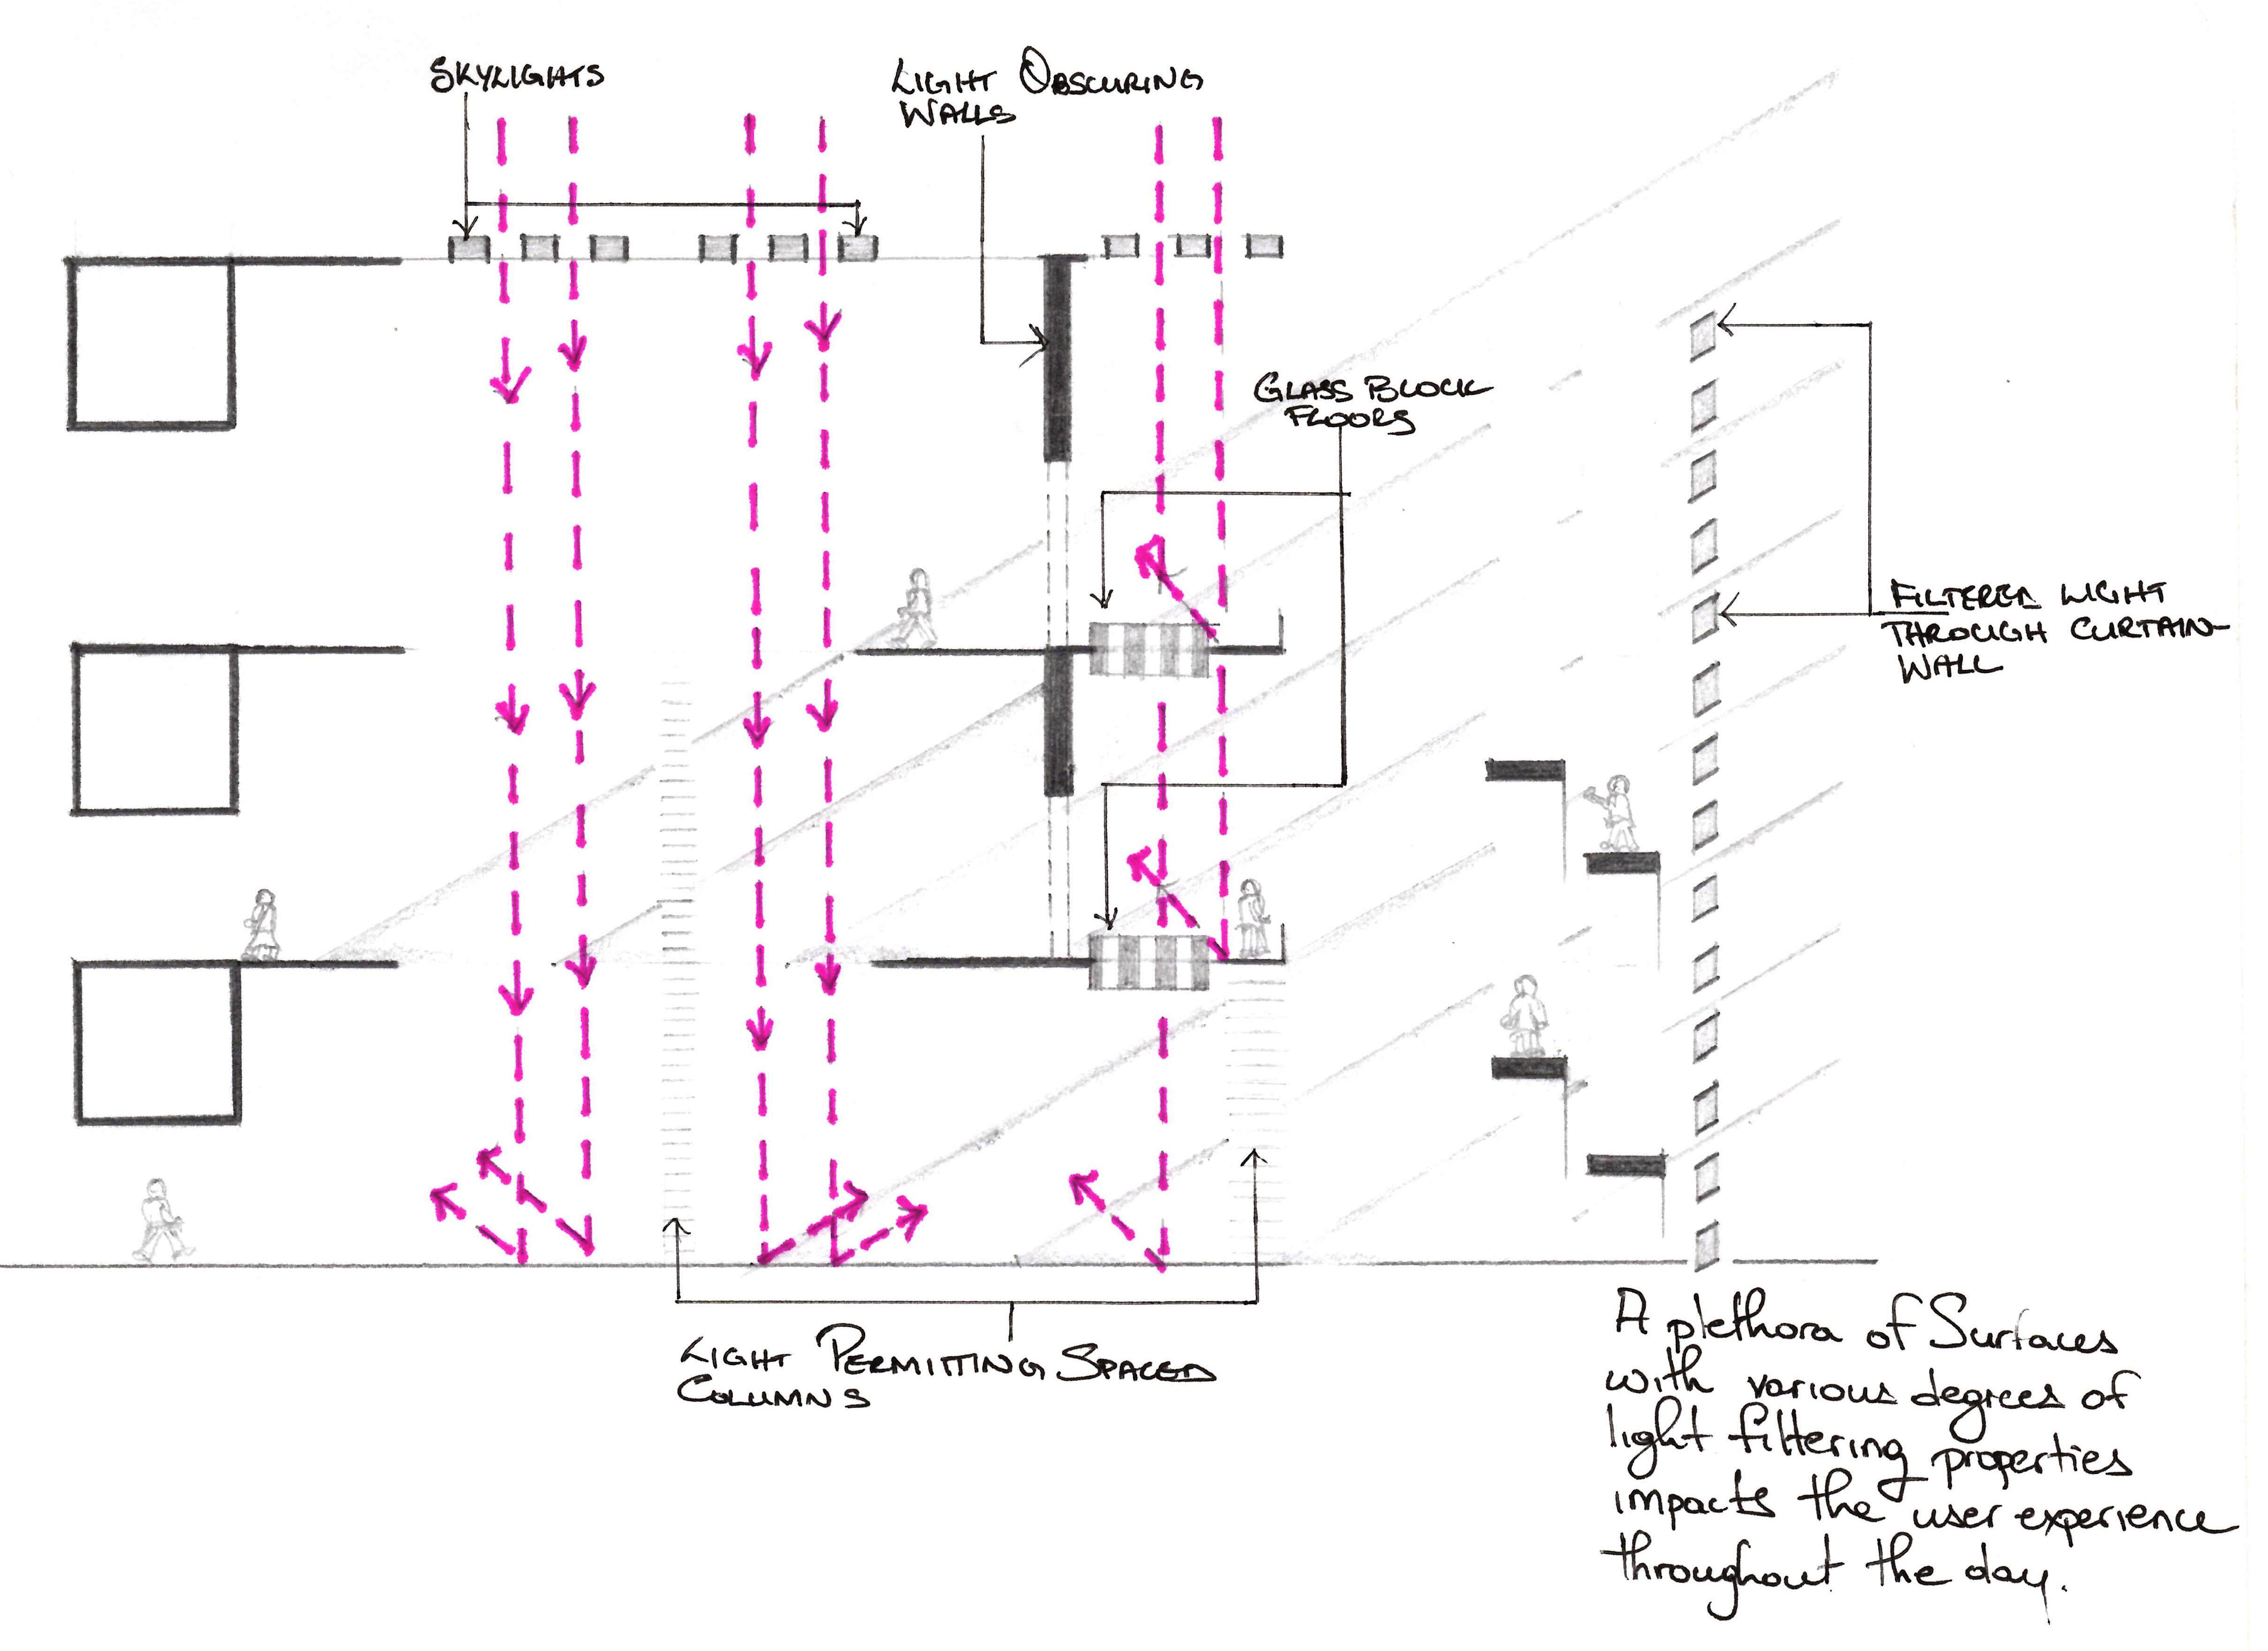 SKYLIGHTS
LIGHT OBSCURING
WALLS
GLASS BLOCK
FLOORS
FILTERED LIGHT
THROUGH CURTAIN-
WALL
LIGHT PERMITTING SPACED
COLUMNS
A plethora of Surfaces
with various degrees of
light filtering properties
impacts the user experience
throughout the day.